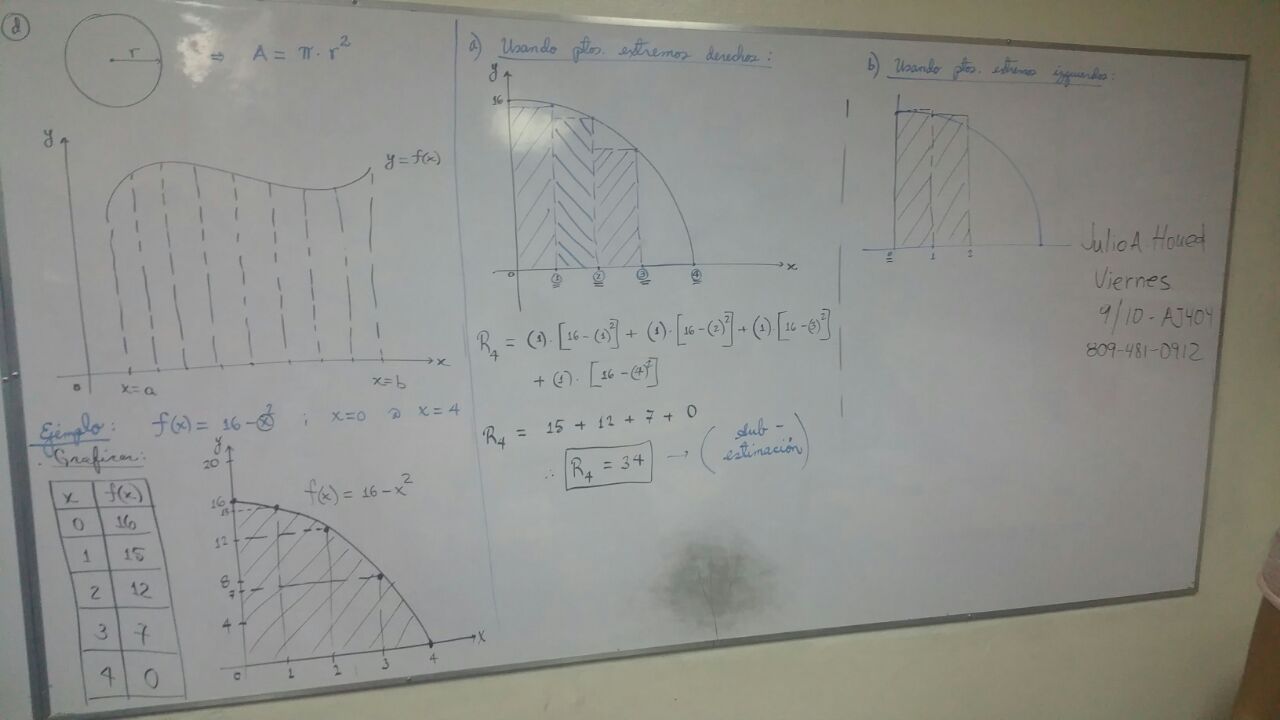 d
r
⇒ A = π · r²
y
y = f(x)
x
0
x=a
x=b
Ejemplo: f(x) = 16 - x² ; x=0 a x=4
. Graficar:
x f(x)
0 16
1 15
2 12
3 7
4 0
y
20
16
15
12
8
7
4
f(x) = 16 - x²
x
0 1 2 3 4
a) Usando ptos. extremos derechos:
y
16
0 1 2 3 4 x
R₄ = (1)·[16-(1)²] + (1)·[16-(2)²] + (1)·[16-(3)²]
+ (1)·[16-(4)²]
R₄ = 15 + 12 + 7 + 0
∴ R₄ = 34 → (sub-
estimación)
b) Usando ptos. extremos izquierdos:
0 1 2
Julio A. Houed
Viernes
9/10 - AJ404
809-481-0912